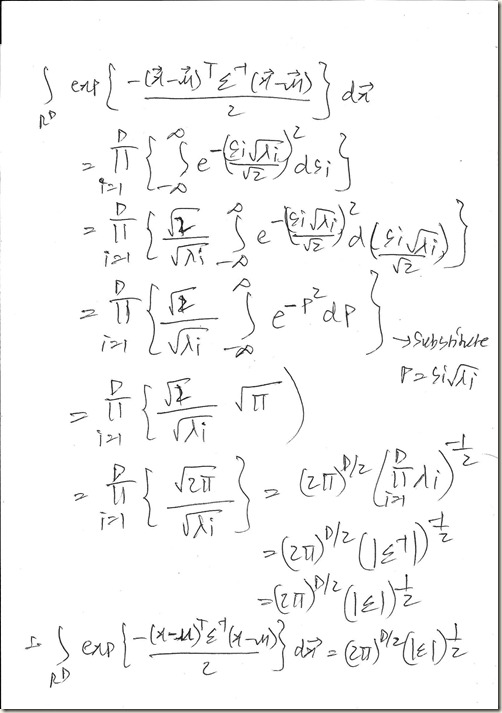 ∫_{R^D} exp{ -(x⃗-μ⃗)^T Σ^{-1} (x⃗-μ⃗) / 2 } dx⃗
= ∏_{i=1}^{D} { ∫_{-∞}^{∞} e^{-(εi√λi / √2)^2} dεi }
= ∏_{i=1}^{D} { √2/√λi ∫_{-∞}^{∞} e^{-(εi√λi / √2)^2} d(εi√λi / √2) }
= ∏_{i=1}^{D} { √2/√λi ∫_{-∞}^{∞} e^{-P^2} dP }
→ substitute
P = εi√λi
= ∏_{i=1}^{D} { √2/√λi √π )
= ∏_{i=1}^{D} { √2π/√λi } = (2π)^{D/2} (∏_{i=1}^{D} λi)^{-1/2}
= (2π)^{D/2} (|Σ^{-1}|)^{-1/2}
= (2π)^{D/2} (|Σ|)^{1/2}
∴ ∫_{R^D} exp{ -(x-μ)^T Σ^{-1} (x-μ) / 2 } dx⃗ = (2π)^{D/2} (|Σ|)^{1/2}